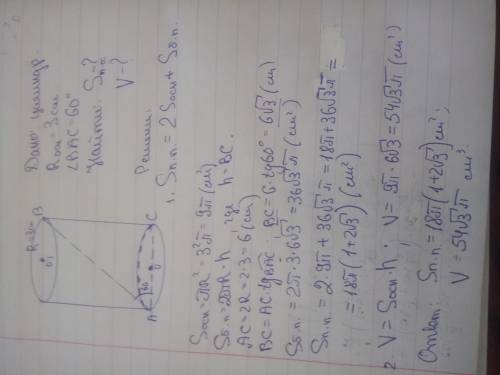 Дано: цилиндр.
Rосн = 3 см
∠BAC = 60°
Найти: Sп.п. - ?
V - ?
R=3см
B
O₁
60°
A
O
C
Решение.
1. Sп.п. = 2Sосн + Sб.п.
Sосн = πR² = 3²π = 9π (см²)
Sб.п. = 2πR·h, где h = BC.
AC = 2R = 2·3 = 6 (см)
BC = AC·tg∠BAC; BC = 6·tg60° = 6√3 (см)
Sб.п. = 2π·3·6√3 = 36√3π (см²)
Sп.п. = 2·9π + 36√3π = 18π + 36√3π =
= 18π(1+2√3) (см²)
2. V = Sосн·h; V = 9π·6√3 = 54√3π (см³)
Ответ: Sп.п. = 18π(1+2√3) см²;
V = 54√3π см³.